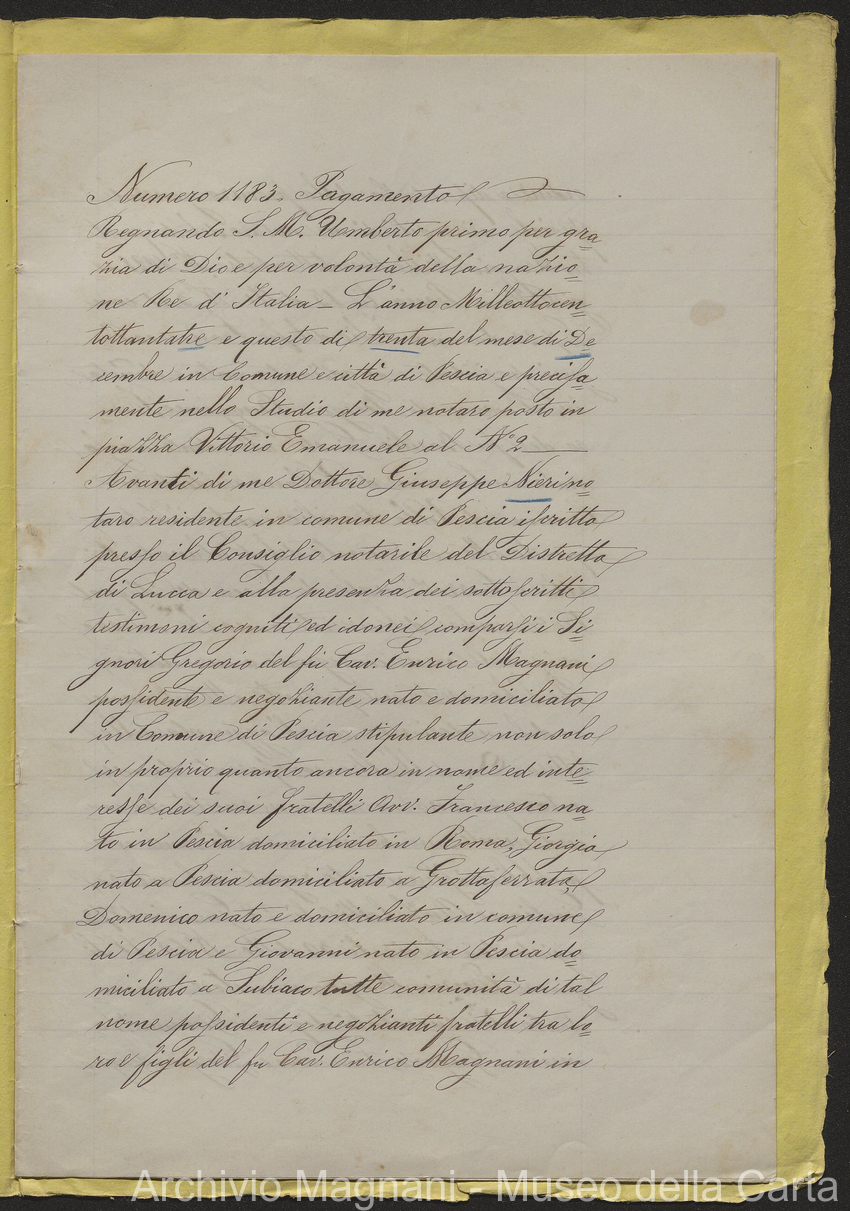 Numero 1183. Pagamento
Regnando S. M. Umberto primo per gra=
zia di Dio e per volontà della nazio=
ne Re d' Italia _ L' anno Milleottocen=
tottantatre e questo dì trenta del mese di De=
cembre in Comune e città di Pescia e precisa=
mente nello Studio di me notaro posto in
piazza Vittorio Emanuele al N.° 2
Avanti di me Dottore Giuseppe Nieri no=
taro residente in comune di Pescia iscritto
presso il Consiglio notarile del Distretto
di Lucca e alla presenza dei sottoscritti
testimoni cogniti ed idonei comparsi i Si=
gnori Gregorio del fù Cav. Enrico Magnani
possidente e negoziante nato e domiciliato
in Comune di Pescia stipulante non solo
in proprio quanto ancora in nome ed inte=
resse dei suoi fratelli Avv. Francesco na=
to in Pescia domiciliato in Roma, Giorgio
nato a Pescia domiciliato a Grottaferrata,
Domenico nato e domiciliato in comune
di Pescia e Giovanni nato in Pescia do=
miciliato a Subiaco tutte comunità di tal
nome possidenti e negozianti fratelli tra lo=
ro e figli del fu Cav. Enrico Magnani in
Archivio Magnani - Museo della Carta